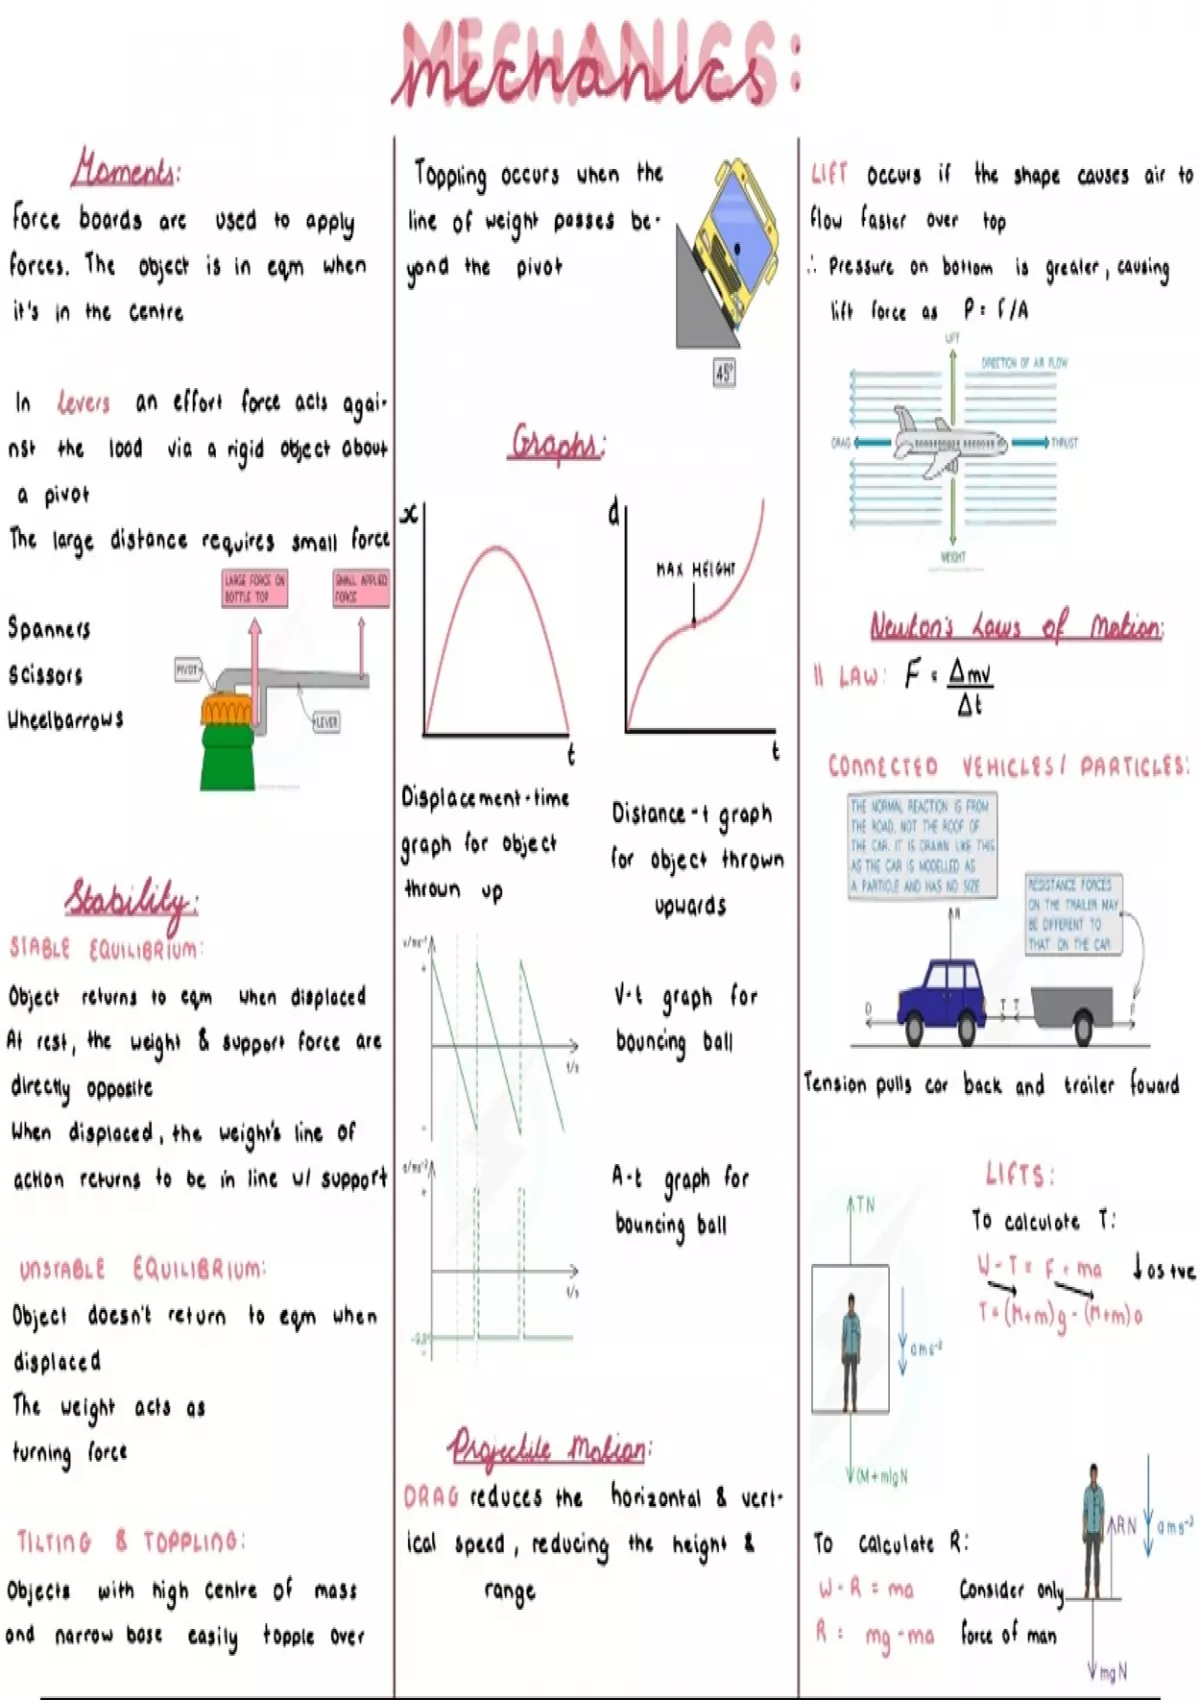 MECHANICS:
mechanics
Moments:
Force boards are used to apply
forces. The object is in eqm when
it's in the centre
In levers an effort force acts agai-
nst the load via a rigid object about
a pivot
The large distance requires small force
LARGE FORCE ON
BOTTLE TOP
SMALL APPLIED
FORCE
Spanners
Scissors
Wheelbarrows
PIVOT
LEVER
Stability:
STABLE EQUILIBRIUM:
Object returns to eqm when displaced
At rest, the weight & support force are
directly opposite
When displaced, the weight's line of
action returns to be in line w/ support
UNSTABLE EQUILIBRIUM:
Object doesn't return to eqm when
displaced
The weight acts as
turning force
TILTING & TOPPLING:
Objects with high centre of mass
and narrow base easily topple over
Toppling occurs when the
line of weight passes be-
yond the pivot
45°
Graphs:
x
t
d
MAX HEIGHT
t
Displacement-time
graph for object
thrown up
Distance-t graph
for object thrown
upwards
v/ms⁻¹
+
t/s
-
V-t graph for
bouncing ball
a/ms⁻²
+
t/s
-9.8
-
A-t graph for
bouncing ball
Projectile Motion:
DRAG reduces the horizontal & vert-
ical speed, reducing the height &
range
LIFT occurs if the shape causes air to
flow faster over top
∴ Pressure on bottom is greater, causing
lift force as P = F/A
LIFT
DIRECTION OF AIR FLOW
DRAG
THRUST
WEIGHT
Newton's Laws of Motion:
II LAW: F = Δmv
Δt
CONNECTED VEHICLES/ PARTICLES:
THE NORMAL REACTION IS FROM
THE ROAD, NOT THE ROOF OF
THE CAR. IT IS DRAWN LIKE THIS
AS THE CAR IS MODELLED AS
A PARTICLE AND HAS NO SIZE
RESISTANCE FORCES
ON THE TRAILER MAY
BE DIFFERENT TO
THAT ON THE CAR
R
D
T T
F
Tension pulls car back and trailer foward
LIFTS:
To calculate T:
W-T = F = ma ↓ as +ve
T = (M+m)g - (M+m)a
TN
a ms⁻²
(M+m)g N
To calculate R:
W-R = ma Consider only
R = mg-ma force of man
RN
a ms⁻²
mg N